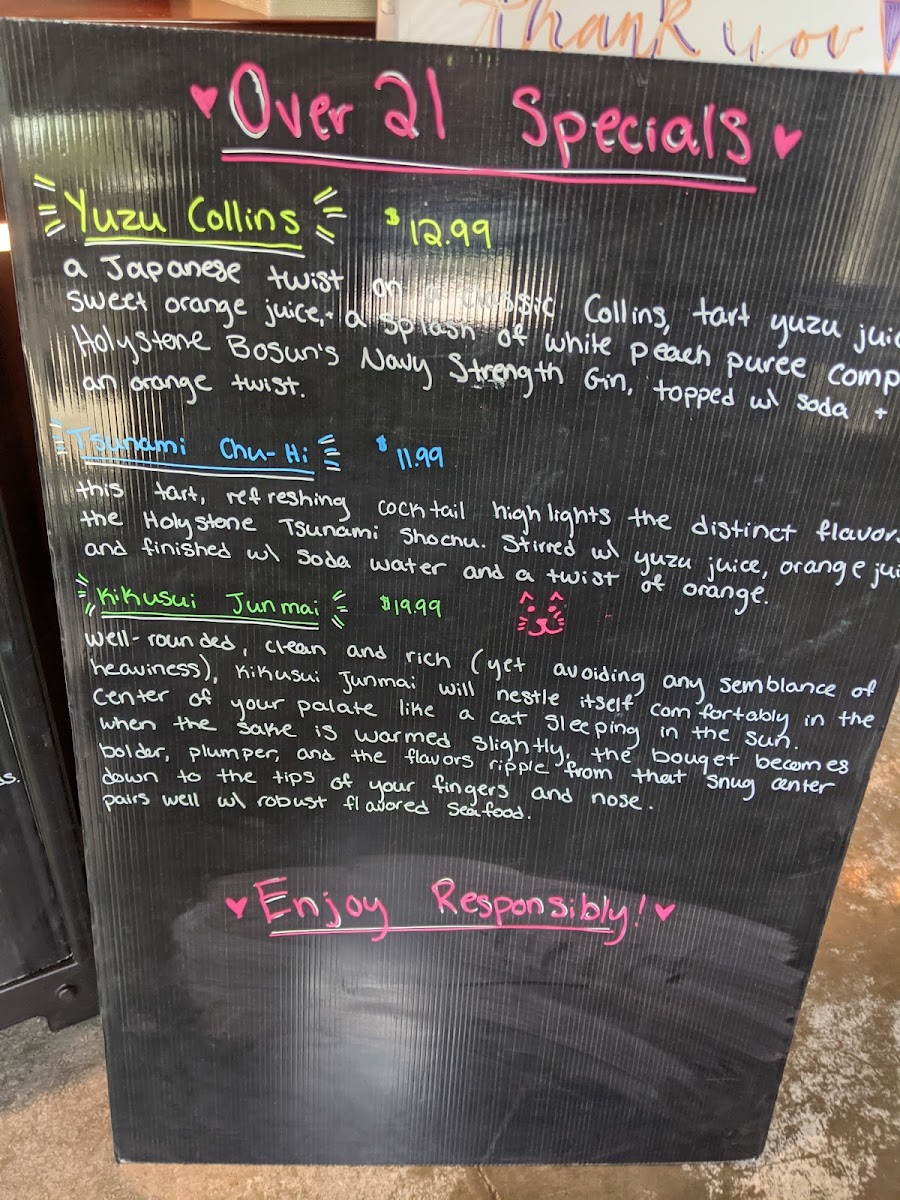 Thank you
Over 21 Specials
Yuzu Collins $12.99
a Japanese twist on a classic Collins, tart yuzu juic
sweet orange juice, + a splash of white peach puree comp
Holystone Bosun's Navy Strength Gin, topped w/ soda +
an orange twist.
Tsunami Chu-Hi $11.99
this tart, refreshing cocktail highlights the distinct flavor
the Holystone Tsunami Shochu. Stirred w/ yuzu juice, orange jui
and finished w/ soda water and a twist of orange.
Kikusui Junmai $19.99
well-rounded, clean and rich (yet avoiding any semblance of
heaviness), Kikusui Junmai will nestle itself comfortably in the
center of your palate like a cat sleeping in the sun.
when the sake is warmed slightly, the bouqet becomes
bolder, plumper, and the flavors ripple from that snug center
down to the tips of your fingers and nose.
pairs well w/ robust flavored seafood.
Enjoy Responsibly!